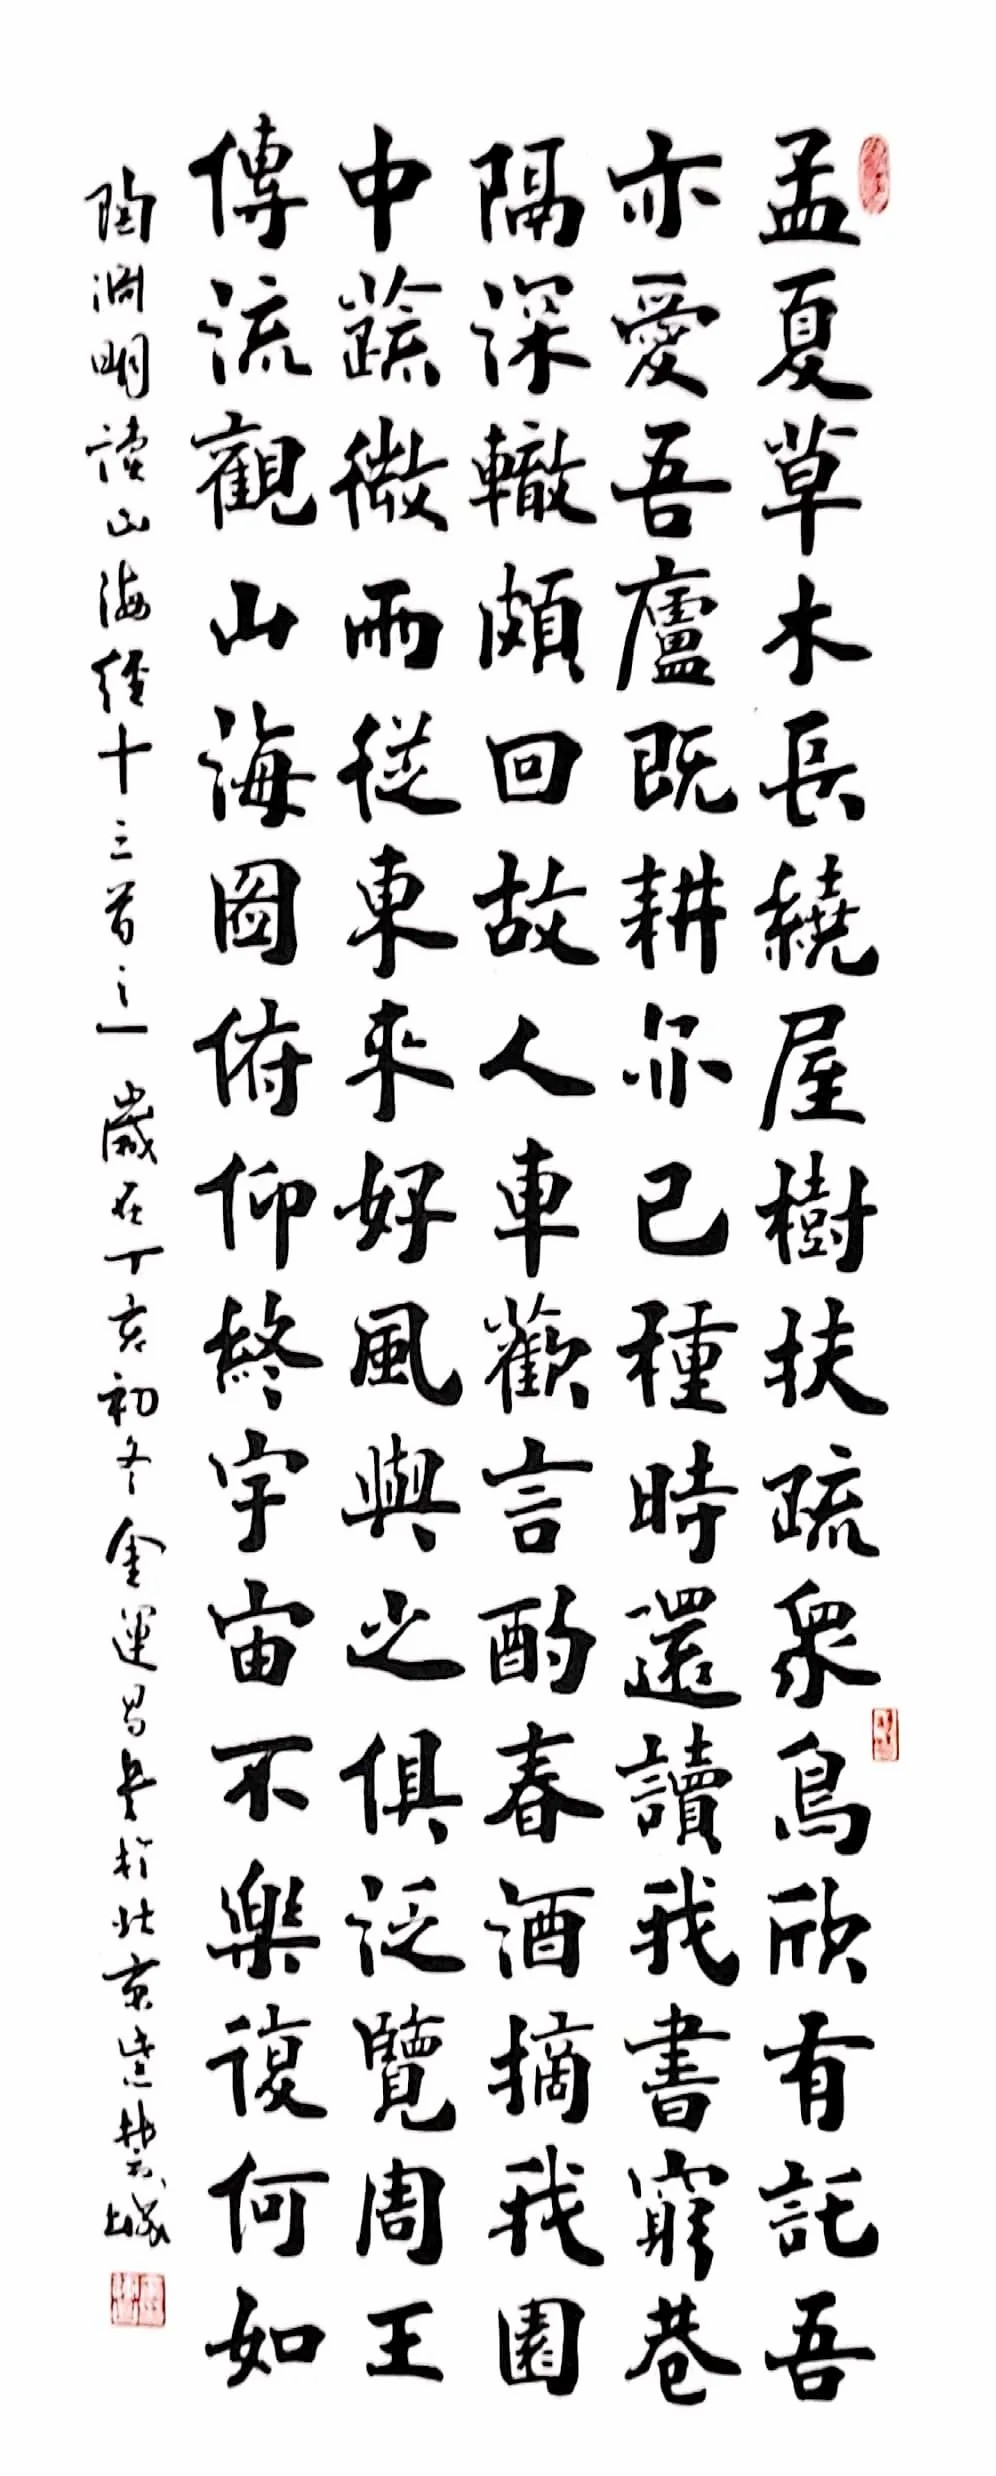 孟夏草木長繞屋樹扶疏衆鳥欣有託吾
亦愛吾廬既耕尔已種時還讀我書窮巷
隔深轍頗回故人車歡言酌春酒摘我園
中蔬微雨從東來好風與之俱泛覽周王
傳流觀山海圖俯仰終宇宙不樂復何如
陶淵明讀山海經十三首之一 歲在丁亥初冬 金運昌書於北京紫禁城